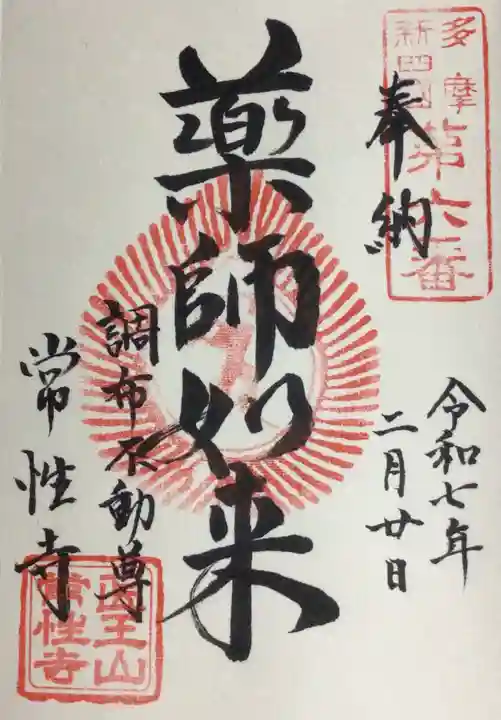 多摩
新四国
第六番
奉納
令和七年
二月廿日
薬師如来
調布不動尊
常性寺
医王山
常性寺